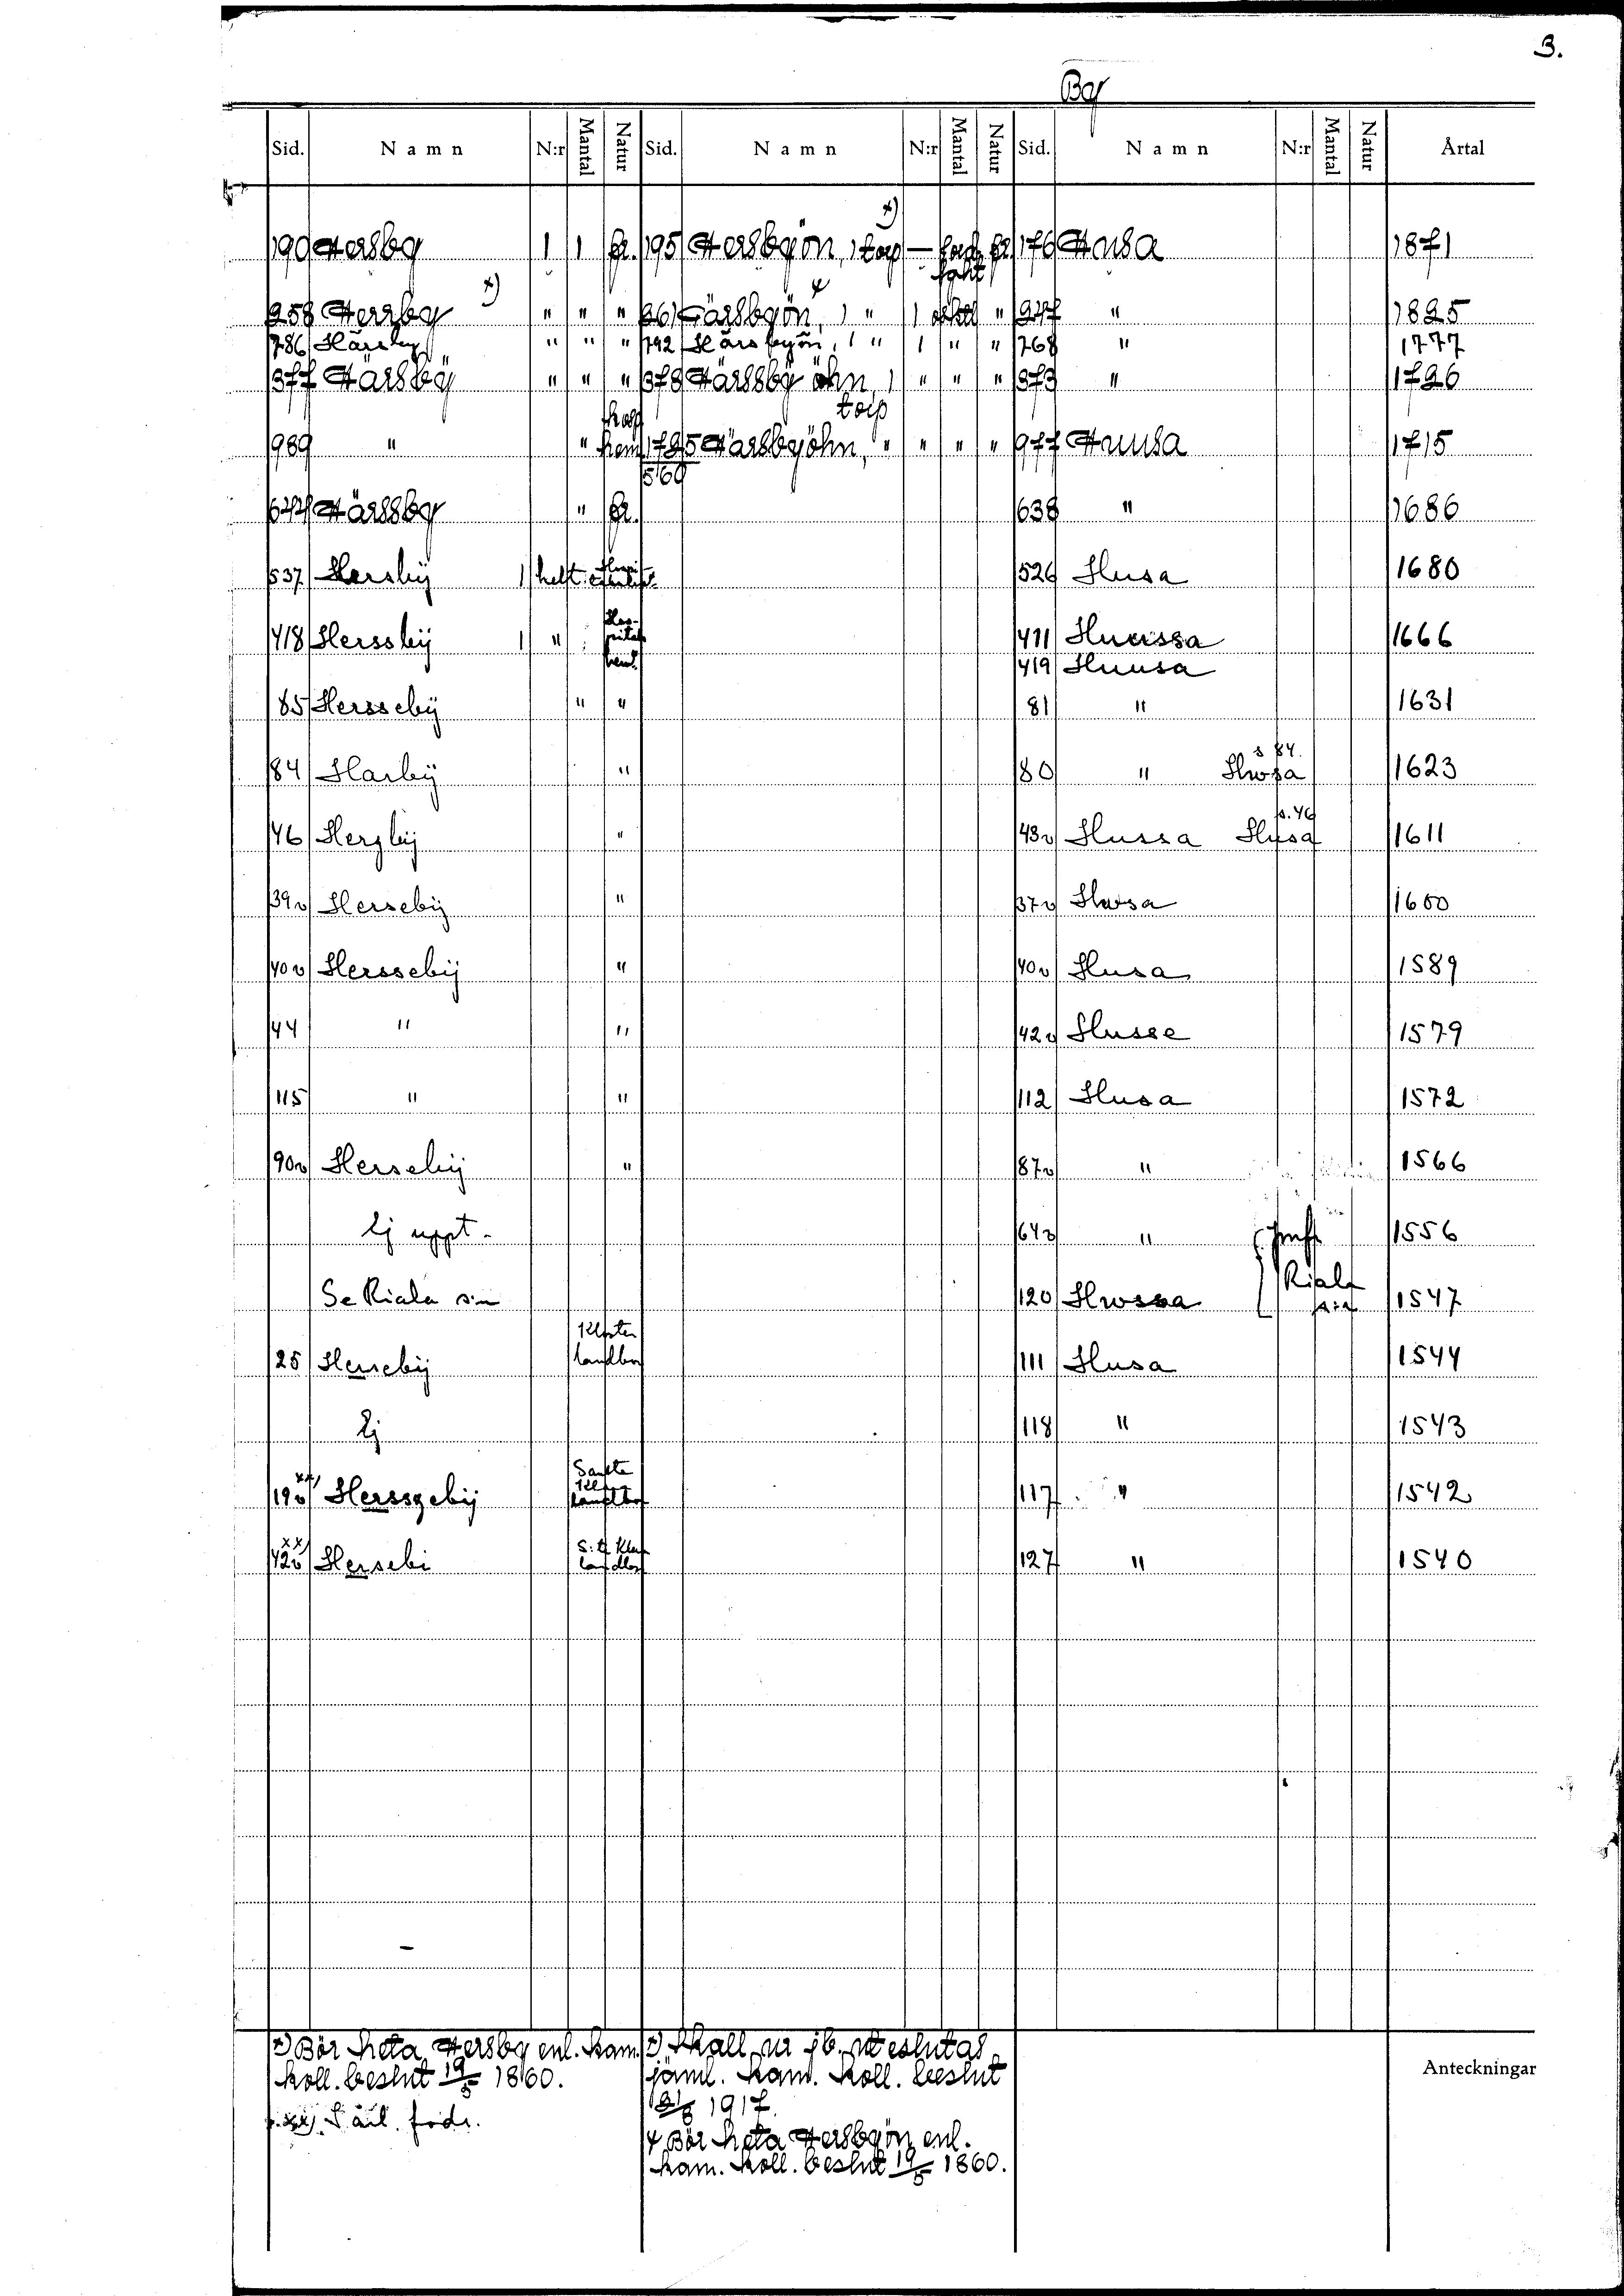 3.
By
Sid. Namn N:r Mantal Natur Sid. Namn N:r Mantal Natur Sid. Namn N:r Mantal Natur Årtal
x)
190 Hersby 1 1 fr. 195 Hersbyön, 1 torp — fr. 176 Husa 1871
x)
258 Herrby " " " 261 Färsbyön, 1 " 1 " 247 " 1825
786 Härsby " " " 792 Härsbyön, 1 " 1 " " 768 " 1777
377 Härsbÿ " " " 378 Härssbÿ öhn 1 " " " 373 " 1726
torp
989 " " hosp. hem. 1725 Härsbyöhn, " " " " 977 Huusa 1715
560
644 Härssby " fr. 638 " 1686
537 Hersbÿ 1 helt 526 Husa 1680
418 Herssbÿ 1 " Hospitals heml. 411 Huussa 1666
419 Huusa
85 Herssebÿ " " 81 " 1631
s 84.
84 Harbÿ " 80 " Hwsa 1623
s. 46
46 Herzbÿ " 43v Hussa Husa 1611
39v Hersebÿ " 37v Hwsa 1600
40v Herssebÿ " 40v Husa 1589
44 " " 42v Husse 1579
115 " " 112 Husa 1572
90v Hersebÿ " 87v " 1566
Ej uppt. 64v " jmfr 1556
Se Riala s:n 120 Hwssa Riala s:n 1547
Kloster
25 Hersebÿ landbor 111 Husa 1544
Ej 118 " 1543
xx) Sankta
19v Hersszebÿ Klara landbor 117 " 1542
xx) S:ta Klara
42v Hersebi landbor 127 " 1540
x) Bör heta Hersby enl. kam.
koll. beslut 19/5 1860.
xx) Särl. fodr.
x) Skall ur jb. uteslutas
jäml. kam. koll. beslut
1917.
Bör heta Hersbyön enl.
kam. koll. beslut 19/5 1860.
Anteckningar